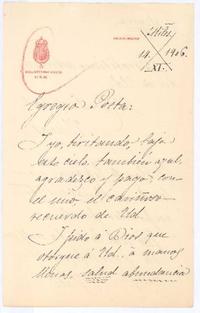 14. 1906.
XI
Egregio Poeta:
I yo, tiritando bajo
este cielo, también azul,
agradezco y pago con
el mío, el cariñoso
recuerdo de Ud.
I pido á Dios que
otorgue á Ud. á manos
llenas, salud abundancia